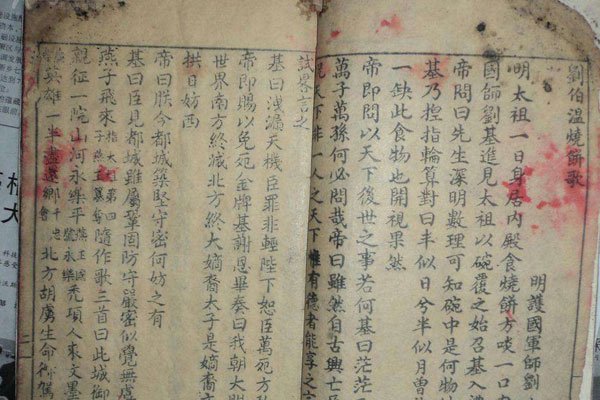 劉伯溫燒餅歌
明護國軍師劉
明太祖一日身居內殿食燒餅方啖一口
國師劉基進見太祖以碗覆之始召基入
帝問曰先生深明數理可知碗中是何物
基乃捏指輪算對曰半似日兮半似月曾
缺此食物也開視果然
帝即問以天下後世之事若何基曰茫茫
萬子萬孫何必問哉帝曰雖然自古興亡
見天下非一人之天下惟有德者能享之
試畧言之
基曰洩漏天機臣罪非輕陛下恕臣萬死方
帝即賜以免死金牌基謝恩畢奏曰我朝大
世界南方終滅北方終大嫡裔太子是嫡裔
拱日妨西
帝曰朕今都城築堅守密何妨之有
基曰臣見都城雖屬鞏固防守嚴密似覺無虞
燕子飛來隨作歌三首曰此城御
親征一院山河永樂平禿頂人來文墨
英雄一半盡還鄉北方胡虜生命